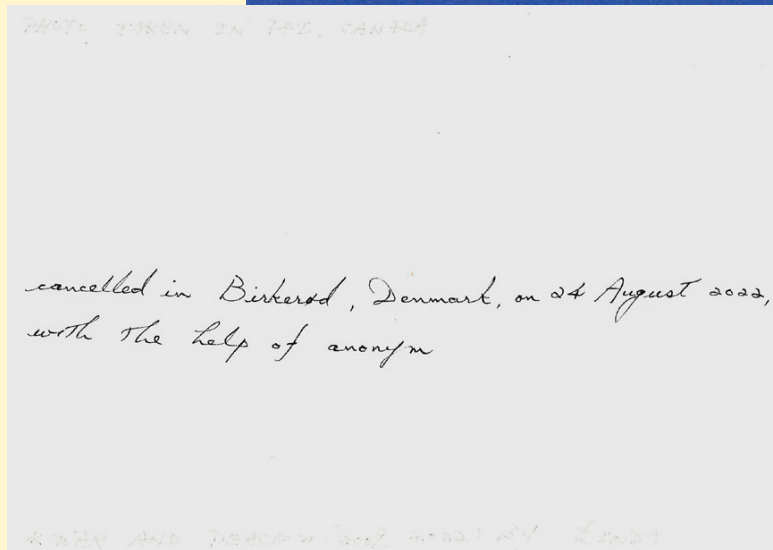 PHOTO TAKEN IN PEI, CANADA
cancelled in Birkerød, Denmark, on 24 August 2022,
with the help of anonym